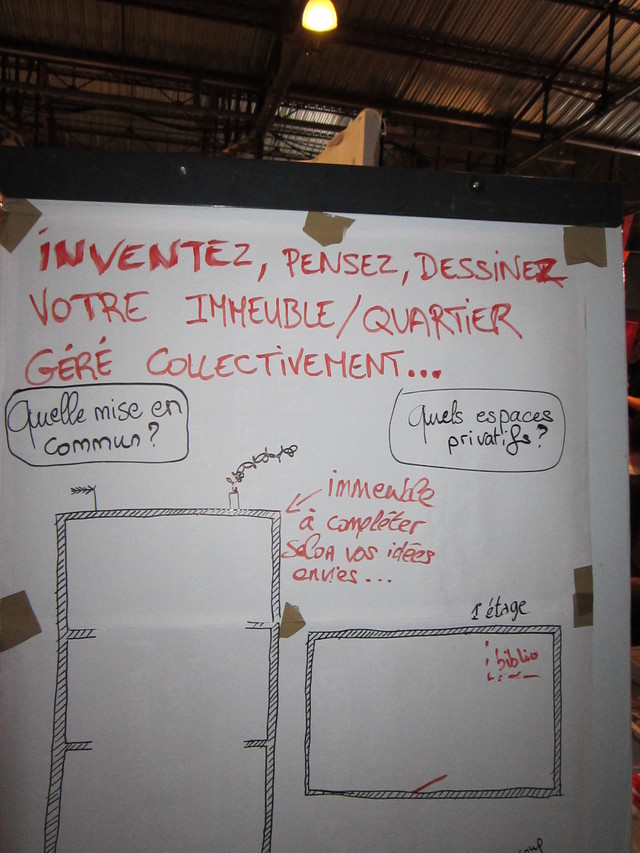 INVENTEZ, PENSEZ, DESSINEZ
VOTRE IMMEUBLE/QUARTIER
GÉRÉ COLLECTIVEMENT...
Quelle mise en
commun?
Quels espaces
privatifs?
immeuble
à compléter
selon vos idées
envies...
1er étage
biblio